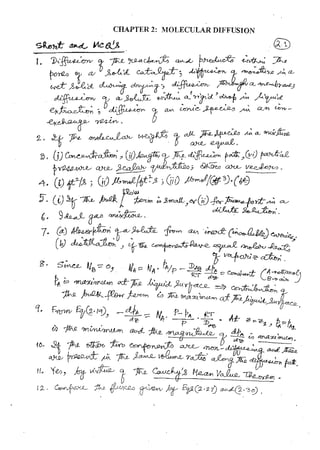 CHAPTER 2: MOLECULAR DIFFUSION
Short and MCQ's
2.1
1. Diffusion of the reactants and products within the
pores of a solid catalyst; diffusion of moisture in a
wet solid during drying; diffusion through a membrane;
diffusion of a solute within a 'rigid' drop in liquid
extraction; diffusion of an ionic species in an ion-
exchange resin.
2. If the molecular weights of all the species in a mixture
are equal.
3. (i) Concentration, (ii) length of the diffusion path, (vi) partial
pressure are scalar quantities; others are vectors.
4. (i) ft²/s; (ii) lbmol/ft².s; (iii) lbmol/(ft³).(ft)
5. (i) If the bulk flow term is small, or (ii) for transport in a
dilute solution.
6. Ideal gas mixture.
7. (a) Absorption of a solute from an inert (insoluble) carrier;
(b) distillation, if the components have equal molar heats
of vaporization.
8. Since N_B = 0, N_A = N_A · p_A/P − D_AB/RT dp_A/dz = constant (A-methanol, B-air)
p_A is maximum at the liquid surface ⇒ contribution of
the bulk flow term is the maximum at the liquid surface.
9. From Eq(2.19), −dp_A/dz = N_A · P−p_A/P · RT/D_AB. At z=z₁, p_A=p_A₁
is the minimum and the magnitude of dp_A/dz is maximum.
10. If the other two components are non-diffusing and these
are present in the same volume ratio along the diffusion path.
11. Yes, by virtue of the Cauchy's Mean Value Theorem.
12. Compare the fluxes given by Eqs(2.27) and (2.30).